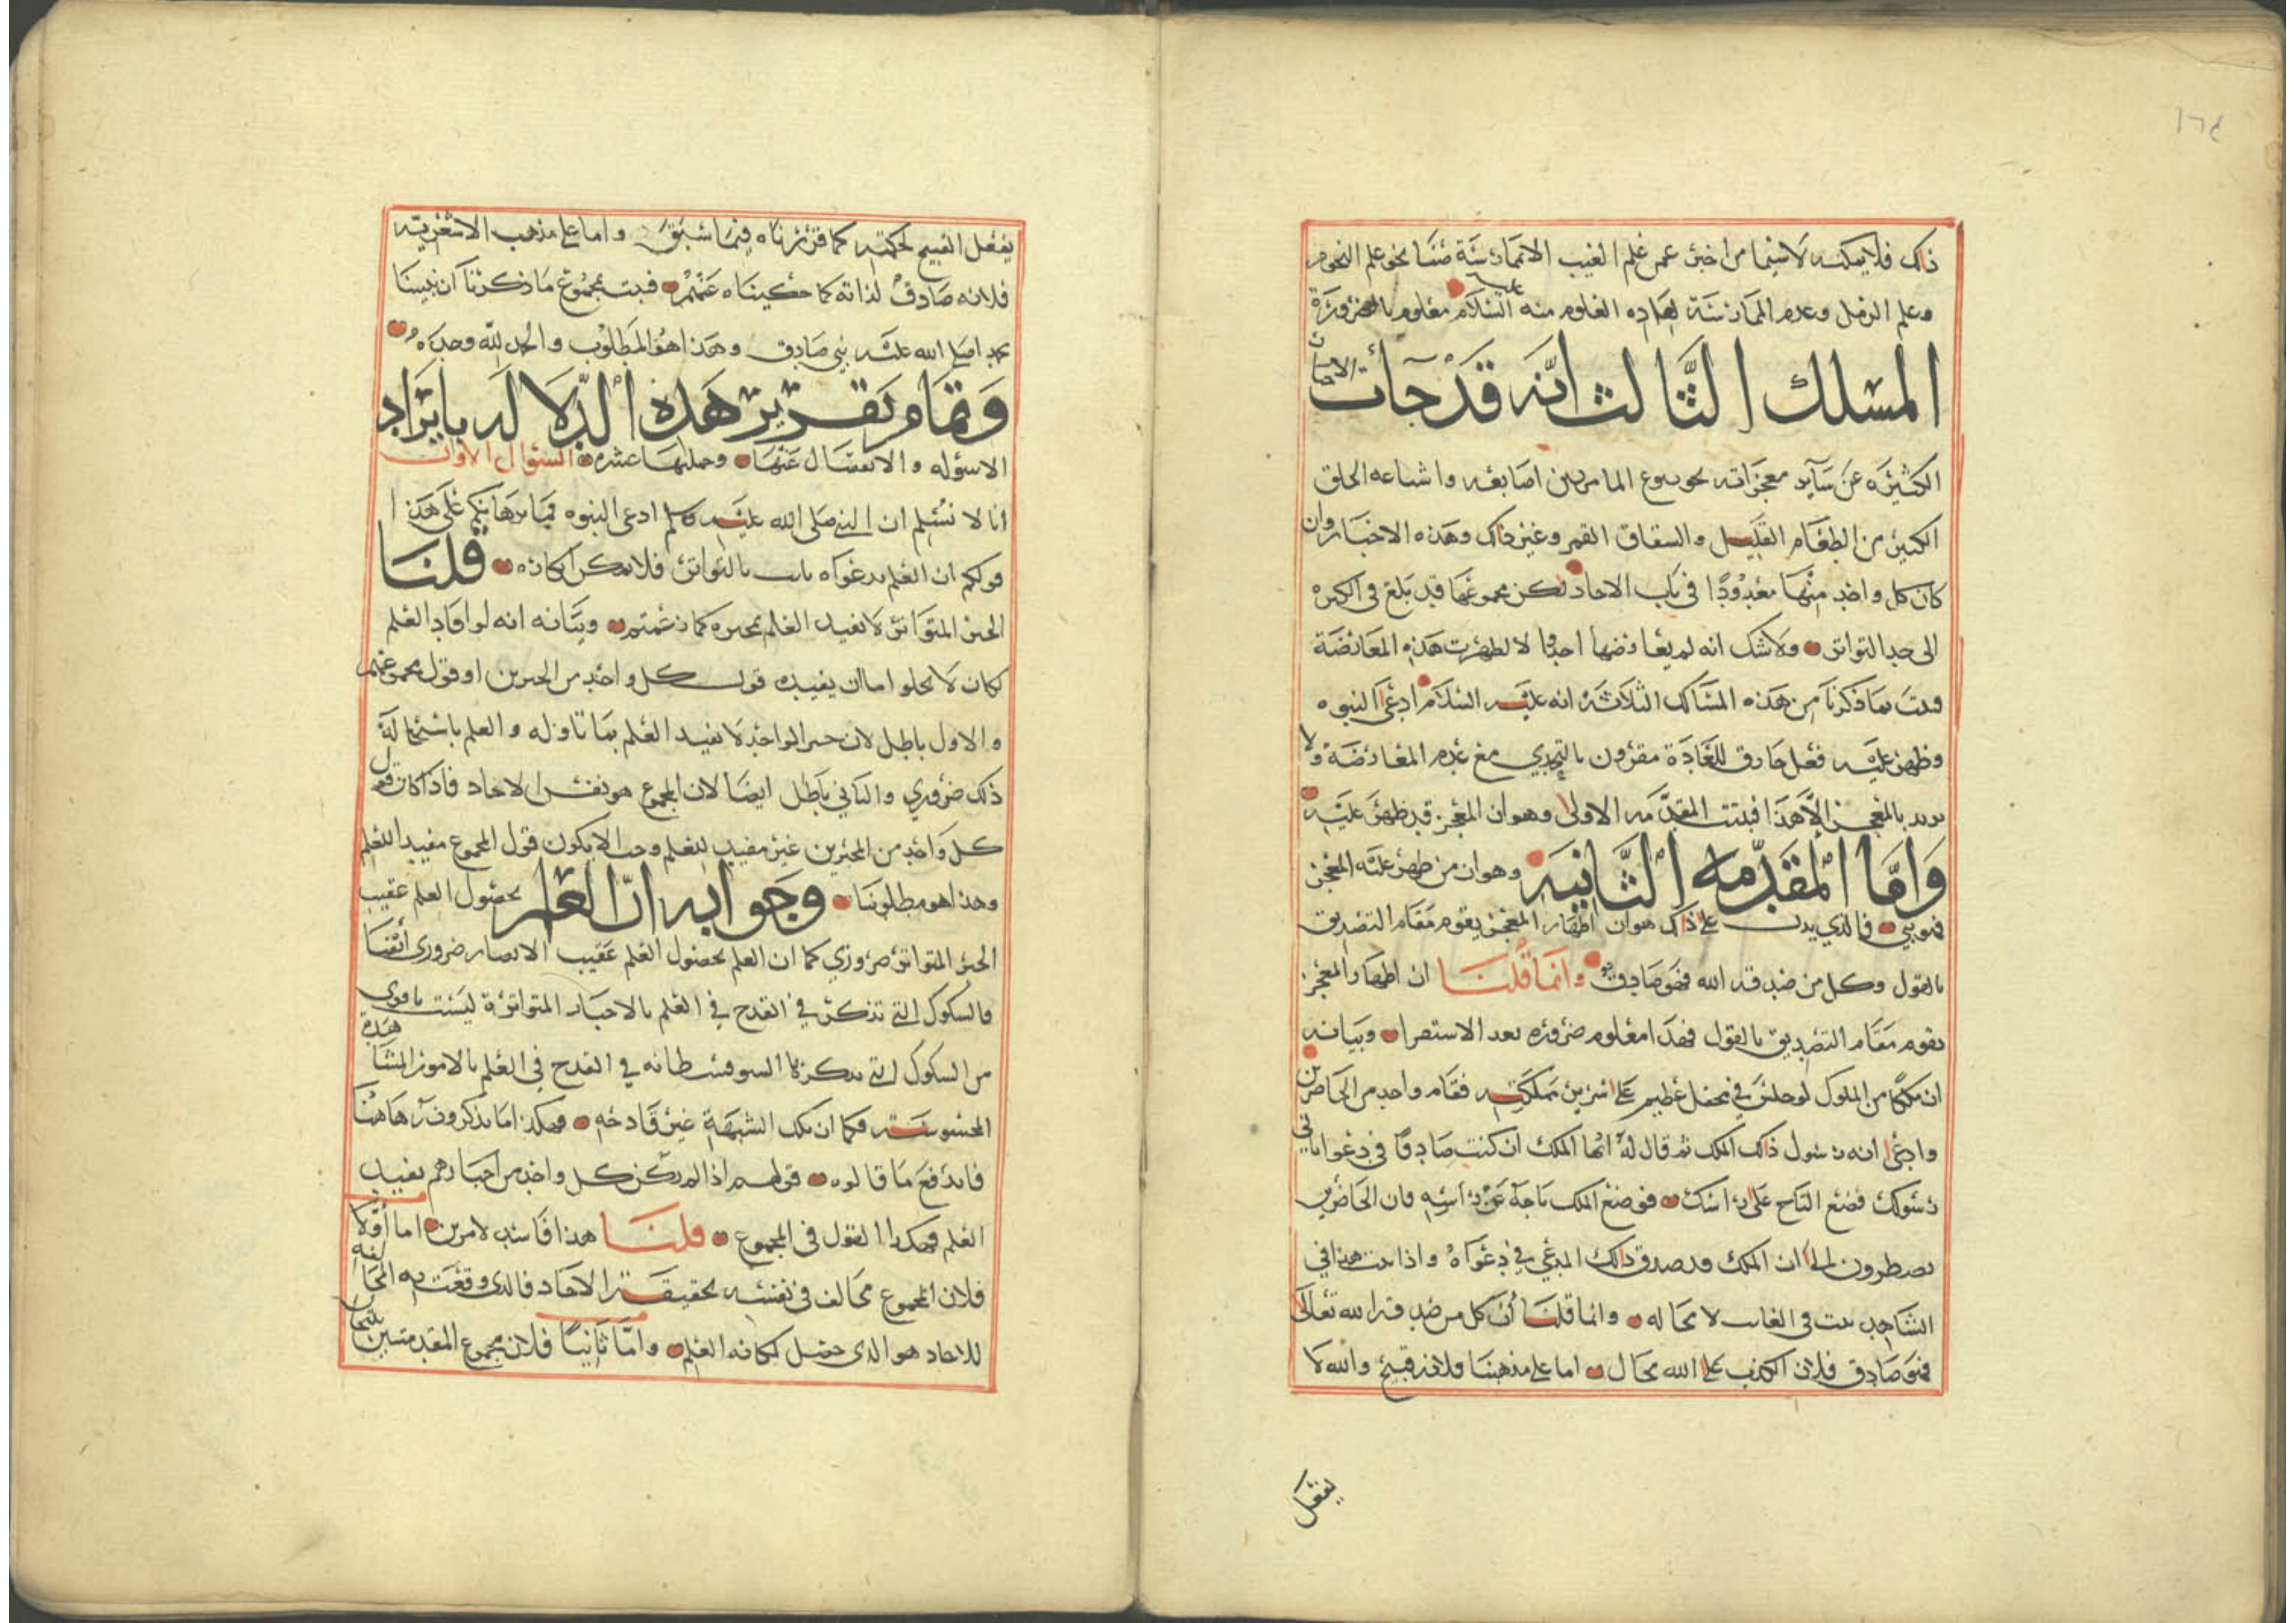 ذلك فلا يمكنه لا سيما من اخبر عن علم الغيب الا بممارسة منا نحو علم النجوم
وعلم الرمل وعدم الممارسة لهذه العلوم منه عليه السلام معلوم بالضرورة
المسلك الثالث انه قد جات الاخبار
الكثيرة عن سآير معجزاته نحو نبوع الما من بين اصابعه واشباعه الخلق
الكثير من الطعام القليل وانشقاق القمر وغير ذلك وهذه الاخبار وان
كان كل واحد منها معدودًا في باب الاحاد لكن مجموعها قد بلغ في الكثره
الى حد التواتر ولا شك انه لم يعارضها احد والا لظهرت هذه المعارضة
فثبت بما ذكرنا من هذه المسالك الثلاثة انه عليه السلام ادعى النبوه
وظهر عليه فعل خارق للعادة مقرون بالتحدي مع عدم المعارضة ولا
نريد بالمعجز الا هذا فثبتت المقدمه الاولى وهو ان المعجز قد ظهر عليه
وَامَّا المقدّمه الثَّانيَه وهو ان من ظهر عليه المعجز
فهو نبي فالذي يدل على ذلك هو ان اظهار المعجز يقوم مقام التصديق
بالقول وكل من صدقه الله فهو صادق وانما قلنا ان اظهار المعجز
يقوم مقام التصديق بالقول فهذا معلوم ضروره بعد الاستقرا وبيانه
ان ملكًا من الملوك لو جلس في محفل عظيم على سرير مملكته فقام واحد من الحاضرين
وادعى انه رسول ذلك الملك ثم قال له ايها الملك ان كنت صادقًا في دعوايَ اني
رسولك فضع التاج على راسك فوضع الملك تاجه على راسه فان الحاضرين
يضطرون الى ان الملك قد صدق ذلك المدعي في دعواه واذا ثبت هذا في
الشاهد ثبت في الغايب لا محاله وانما قلنا أن كل من صدقه الله تعالى
فهو صادق فلان الكذب على الله محال اما على مذهبنا فلانه قبيح والله لا
يفعل
يفعل القبيح لحكمته كما قررناه فيما سبق واما على مذهب الاشعريه
فلانه صادق لذاته كما حكيناه عنهم فثبت بمجموع ما ذكرنا ان نبينا
محمد صلى الله عليه نبي صادق وهذا هو المطلوب والحمد لله وحده
وَتمام تقرير هَذه الدّلاله بايرَاد
الاسؤله والانفصال عنها وجملتها عشره السؤال الاول
انا لا نسلم ان النبي صلى الله عليه وسلم ادعى النبوه فما برهانكم على هذا
قولكم ان العلم بدعواه ثابت بالتواتر فلا يمكن انكاره قلنَا
الخبر المتواتر لا يفيد العلم بمخبره كما زعمتم وبيانه انه لو افاد العلم
لكان لا يخلو اما ان يفيده قول كل واحد من المخبرين او قول مجموعهم
والاول باطل لان خبر الواحد لا يفيد العلم بما تناوله والعلم باستحالة
ذلك ضروري والثاني باطل ايضا لان المجموع هو نفس الاحاد فاذا كان قول
كل واحد من المخبرين غير مفيد للعلم وجب الا يكون قول المجموع مفيدا للعلم
وهذا هو مطلوبنا وجوابه انّ العلم بحصول العلم عقيب
الخبر المتواتر ضروري كما ان العلم بحصول العلم عقيب الابصار ضروري أيضا
فالشكوك التي تذكر في القدح في العلم بالاخبار المتواترة ليست باقوى
من الشكوك التي يذكرها السوفسطانيه في القدح في العلم بالامور المشاهدة
المحسوسة فكما ان تلك الشبهة غير قادحه فهكذا ما يذكرون هاهنا
فاندفع ما قالوه قولهم اذا لم يكن كل واحد من اخبارهم يفيد
العلم فهكذا القول في المجموع قلنا هذا فاسد لامرين اما أوّلا
فلان المجموع مخالف في نفسه لحقيقة الاحاد فالذي وقعت به المخالفه
للاحاد هو الذي حصل لمكانه العلم وامّا ثانيًا فلان مجموع المقدمتين